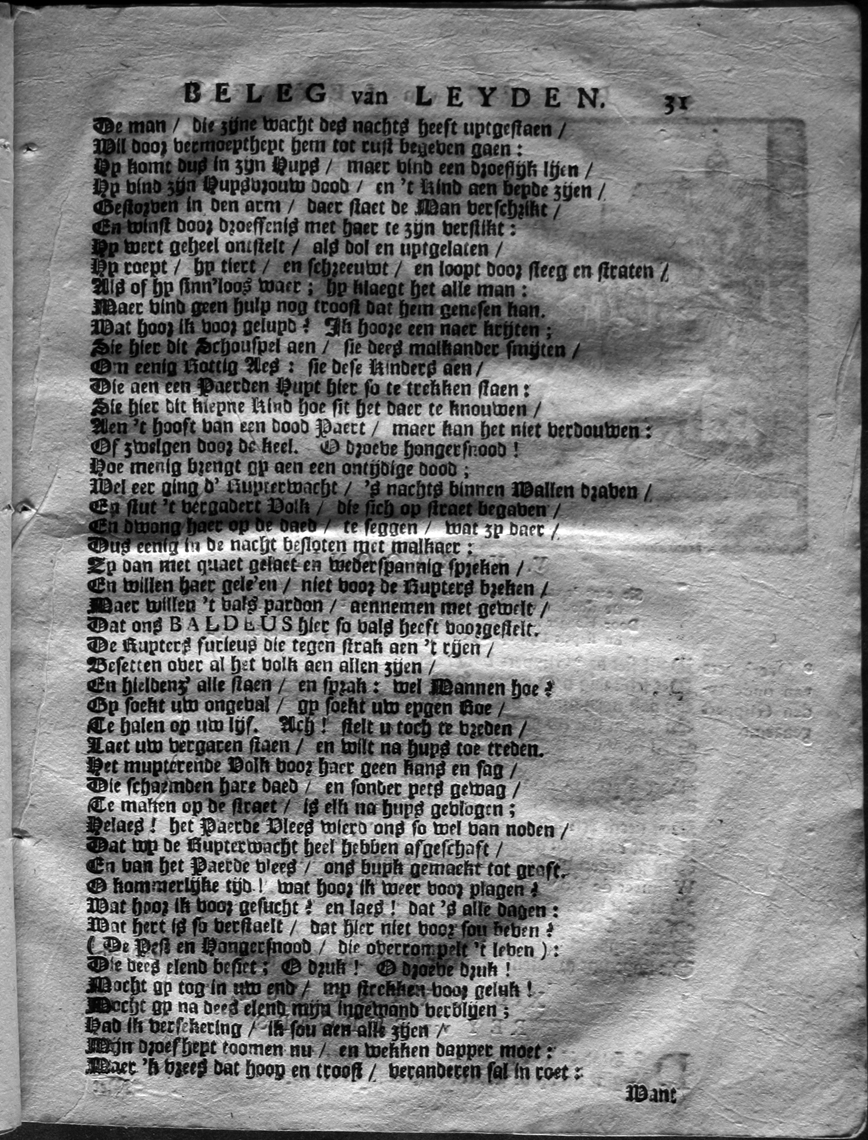 BELEG van LEYDEN. 31
De man / die zijne wacht des nachts heeft uytgestaen /
Wil door vermoeytheyt hem tot rust begeven gaen :
Hy komt dus in zijn Huys / maer vind een droeflijk lijen /
Hy vind zijn Huysvrouw dood / en 't Kind aen beyde zijen /
Gestorven in den arm / daer staet de Man verschrikt /
En winst door droeffenis met haer te zijn verstikt :
Hy wert geheel ontstelt / als dol en uytgelaten /
Hy roept / hy tiert / en schreeuwt / en loopt door steeg en straten /
Als of hy sinn'loos waer ; hy klaegt het alle man :
Maer vind geen hulp nog troost dat hem genesen kan.
Wat hoor ik voor geluyd ? Ik hoore een naer krijten ;
Sie hier dit Schouspel aen / sie dees malkander smijten /
Om eenig Rottig Aes : sie dese Kinders aen /
Die aen een Paerden Huyt hier so te trekken staen :
Sie hier dit kleyne Kind hoe sit het daer te knouwen /
Aen 't hooft van een dood Paert / maer kan het niet verdouwen :
Of zwelgen door de keel. O droeve hongersnood !
Hoe menig brengt gy aen een ontijdige dood ;
Wel eer ging d' Ruyterwacht / 's nachts binnen Wallen draven /
En stut 't vergadert Volk / die sich op straet begaven /
En dwong haer op de daed / te seggen / wat zy daer /
Dus eenig in de nacht besloten met malkaer :
Zy dan met quaet gelaet en wederspannig spreken /
En willen haer gele'en / niet voor de Ruyters breken /
Maer willen 't vals pardon / aennemen met gewelt /
Dat ons BALDEUS hier so vals heeft voorgestelt.
De Ruyters furieus die tegen strak aen 't rijen /
Besetten over al het volk aen allen zijen /
En hieldenz' alle staen / en sprak : wel Mannen hoe ?
Gy soekt uw ongeval / gy soekt uw eygen Roe /
Te halen op uw lijf. Ach ! stelt u toch te vreden /
Laet uw vergaren staen / en wilt na huys toe treden.
Het muyterende Volk voor haer geen kans en sag /
Die schaemden hare daed / en sonder yets gewag /
Te maken op de straet / is elk na huys gevlogen ;
Helaes ! het Paerde Vlees wierd ons so wel van noden /
Dat wy de Ruyterwacht heel hebben afgeschaft /
En van het Paerde vlees / ons buyk gemackt tot graft.
O kommerlijke tijd ! wat hoor ik weer voor plagen ?
Wat hoor ik voor gesucht ? en laes ! dat 's alle dagen :
Wat hert is so verstaelt / dat hier niet voor sou beven ?
( De Pest en Hongersnood / die overrompelt 't leven ) :
Die dees elend besiet ; O druk ! O droeve druk !
Mocht gy tog in uw end / my strekken voor geluk !
Mocht gy na dees elend mijn ingewand verblijen ;
Had ik versekering / ik sou aen alle zijen /
Mijn droefheyt toomen nu / en wekken dapper moet :
Maer 'k vrees dat hoop en troost / veranderen sal in roet :
Want